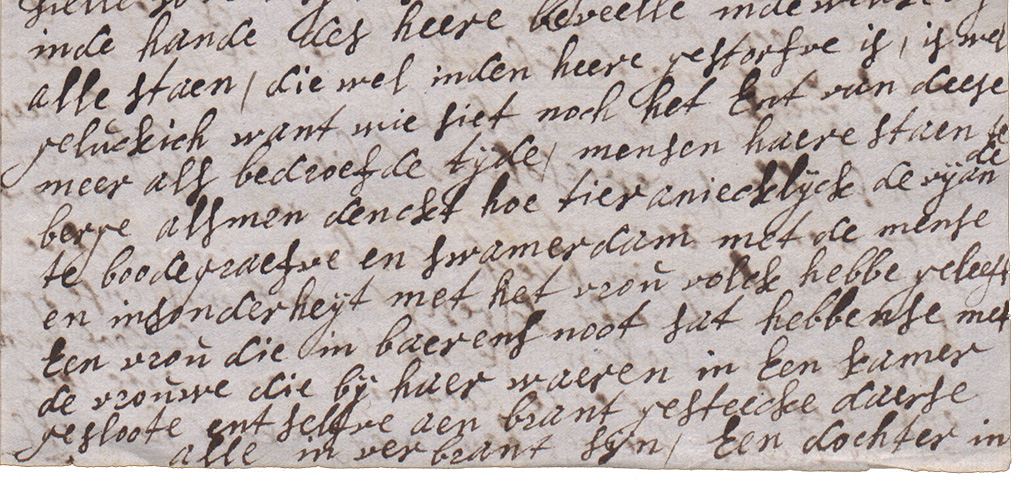 inde hande des heere beveelle inde
alle staen / die wel inden heere gestorfve is / is wel
geluckich want wie siet noch het Ent van deese
meer als bedroefde tijde / mensen haere staen te
berge alsmen denckt hoe tieraniecklijck de vijande
te boodegraefve en swamerdam met de mense
en insonderheyt met het vrou volck hebbe geleeft
Een vrou die in baerens noot sat hebbense met
de vrouwe die bij haer waeren in Een kamer
gesloote ent selfve aen brant gesteecke daerse
alle in verbrant sijn / Een dochter in